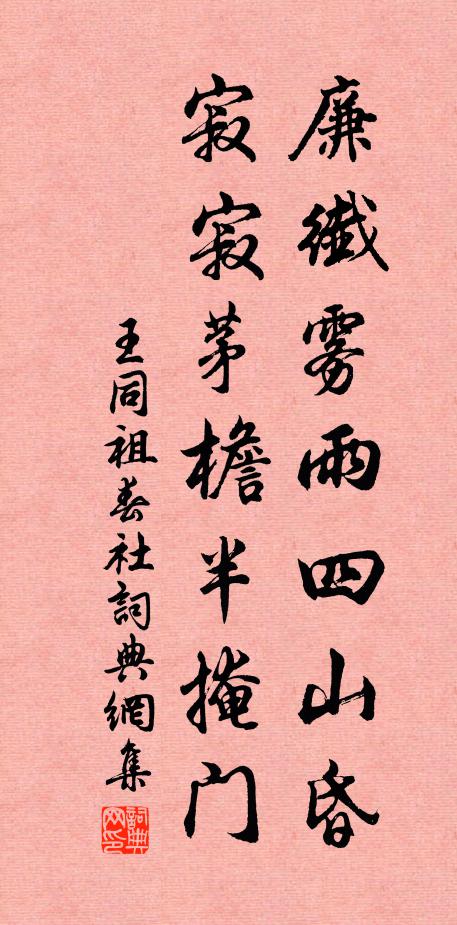 廉纖雾雨四山昏
寂寂茅檐半掩门
王同祖春社詞典網集
詞典网印